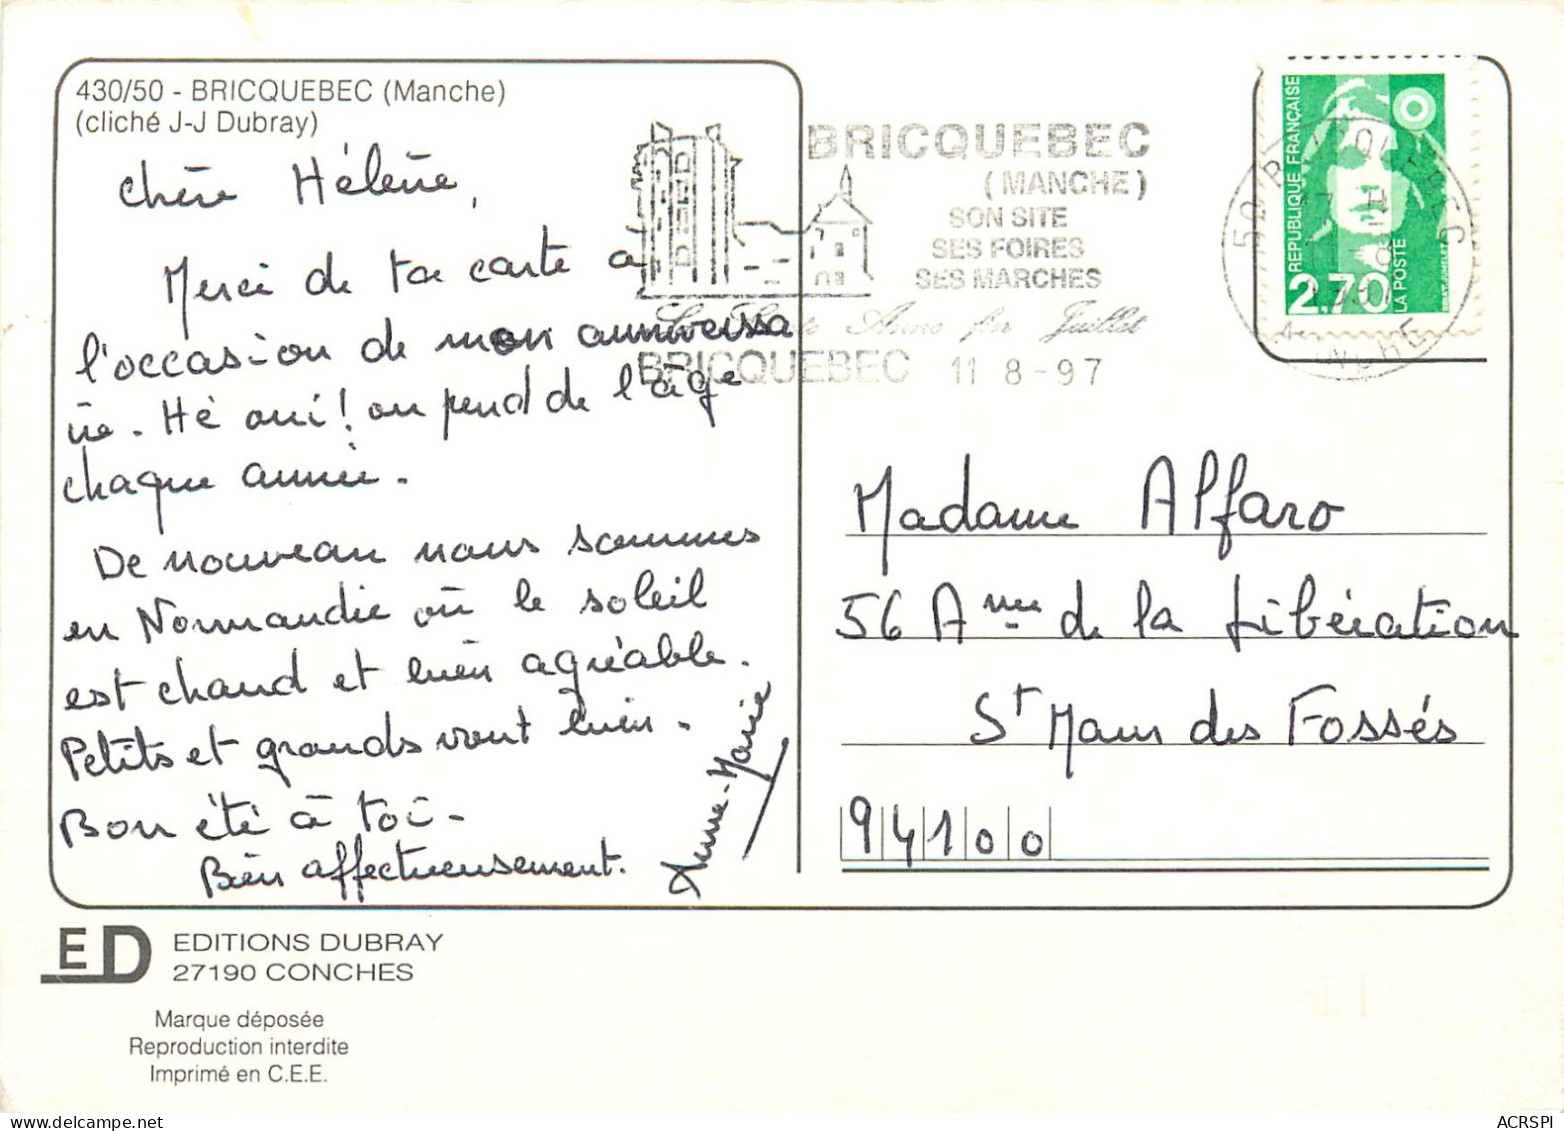 430/50 - BRICQUEBEC (Manche)
(cliché J-J Dubray)
Chère Hélène,
Merci de ta carte à
l'occasion de mon anniversa
ire. Hé oui ! on prend de l'âge
chaque année.
De nouveau nous sommes
en Normandie où le soleil
est chaud et bien agréable.
Petits et grands vont bien.
Bon été à toi.
Bien affectueusement.
Anne-Marie
BRICQUEBEC
(MANCHE)
SON SITE
SES FOIRES
SES MARCHES
La Sainte Anne fin Juillet
BRICQUEBEC 11 8 - 97
REPUBLIQUE FRANÇAISE
2,70
LA POSTE
50 BRICQUEBEC
MANCHE
Madame Alfaro
56 Anue de la Libération
St Maur des Fossés
94100
ED
EDITIONS DUBRAY
27190 CONCHES
Marque déposée
Reproduction interdite
Imprimé en C.E.E.
ACRSPI